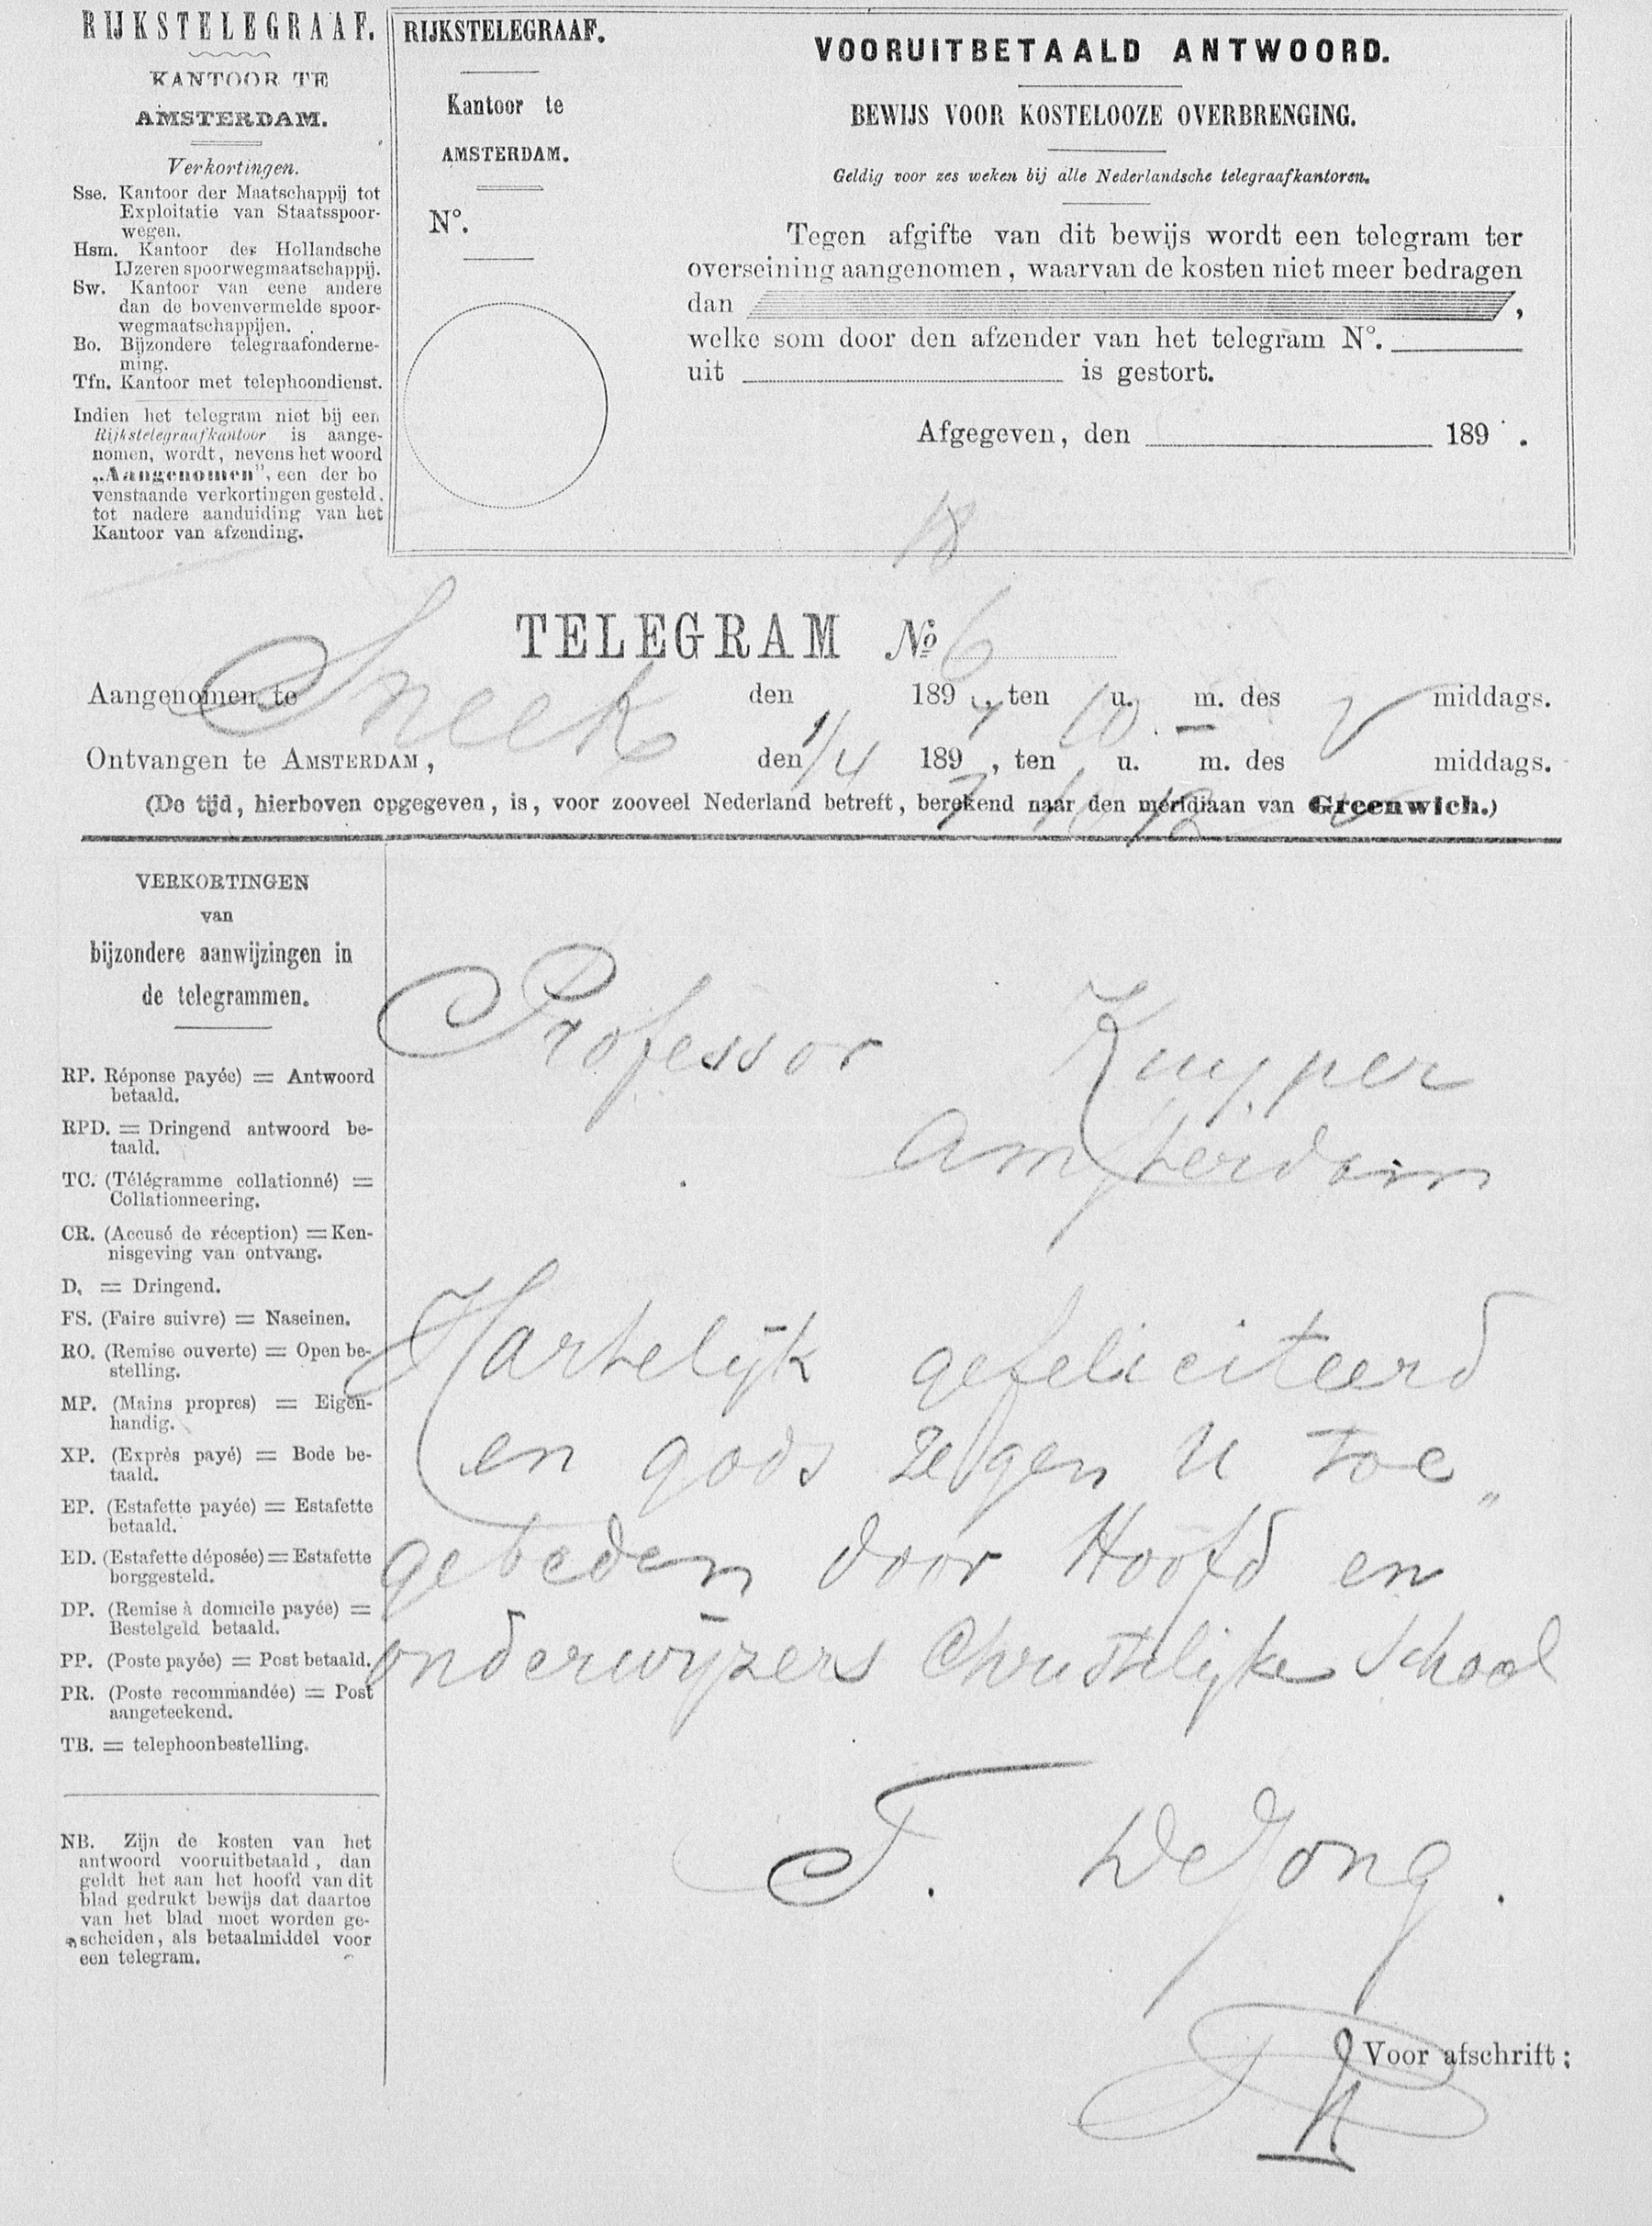 RIJKSTELEGRAAF.
KANTOOR TE
AMSTERDAM.
Verkortingen.
Sse. Kantoor der Maatschappij tot
Exploitatie van Staatsspoor-
wegen.
Hsm. Kantoor der Hollandsche
IJzeren spoorwegmaatschappij.
Sw. Kantoor van eene andere
dan de bovenvermelde spoor-
wegmaatschappijen.
Bo. Bijzondere telegraafonderne-
ming.
Tfn. Kantoor met telephoondienst.
Indien het telegram niet bij een
Rijkstelegraafkantoor is aange-
nomen, wordt, nevens het woord
„Aangenomen”, een der bo
venstaande verkortingen gesteld,
tot nadere aanduiding van het
Kantoor van afzending.
RIJKSTELEGRAAF.
Kantoor te
AMSTERDAM.
N°.
VOORUITBETAALD ANTWOORD.
BEWIJS VOOR KOSTELOOZE OVERBRENGING.
Geldig voor zes weken bij alle Nederlandsche telegraafkantoren.
Tegen afgifte van dit bewijs wordt een telegram ter
overseining aangenomen, waarvan de kosten niet meer bedragen
dan ,
welke som door den afzender van het telegram N°.
uit is gestort.
Afgegeven, den 189 .
18
TELEGRAM No 6
Aangenomen te Sneek den 189 7, ten 10 u. – m. des V middags.
Ontvangen te AMSTERDAM, den 1/4 189 , ten u. m. des middags.
(De tijd, hierboven opgegeven, is, voor zooveel Nederland betreft, berekend naar den meridiaan van Greenwich.)
7 10 12
VERKORTINGEN
van
bijzondere aanwijzingen in
de telegrammen.
RP. Réponse payée) = Antwoord
betaald.
RPD. = Dringend antwoord be-
taald.
TC. (Télégramme collationné) =
Collationneering.
CR. (Accusé de réception) = Ken-
nisgeving van ontvang.
D. = Dringend.
FS. (Faire suivre) = Naseinen.
RO. (Remise ouverte) = Open be-
stelling.
MP. (Mains propres) = Eigen-
handig.
XP. (Exprès payé) = Bode be-
taald.
EP. (Estafette payée) = Estafette
betaald.
ED. (Estafette déposée) = Estafette
borggesteld.
DP. (Remise à domicile payée) =
Bestelgeld betaald.
PP. (Poste payée) = Post betaald.
PR. (Poste recommandée) = Post
aangeteekend.
TB. = telephoonbestelling.
NB. Zijn de kosten van het
antwoord vooruitbetaald, dan
geldt het aan het hoofd van dit
blad gedrukt bewijs dat daartoe
van het blad moet worden ge-
scheiden, als betaalmiddel voor
een telegram.
Professor Kuyper
Amsterdam
Hartelijk gefeliciteerd
en gods zegen U toe„
gebeden door Hoofd en
onderwijzers Christelijke School
T. De Jong.
Voor afschrift: